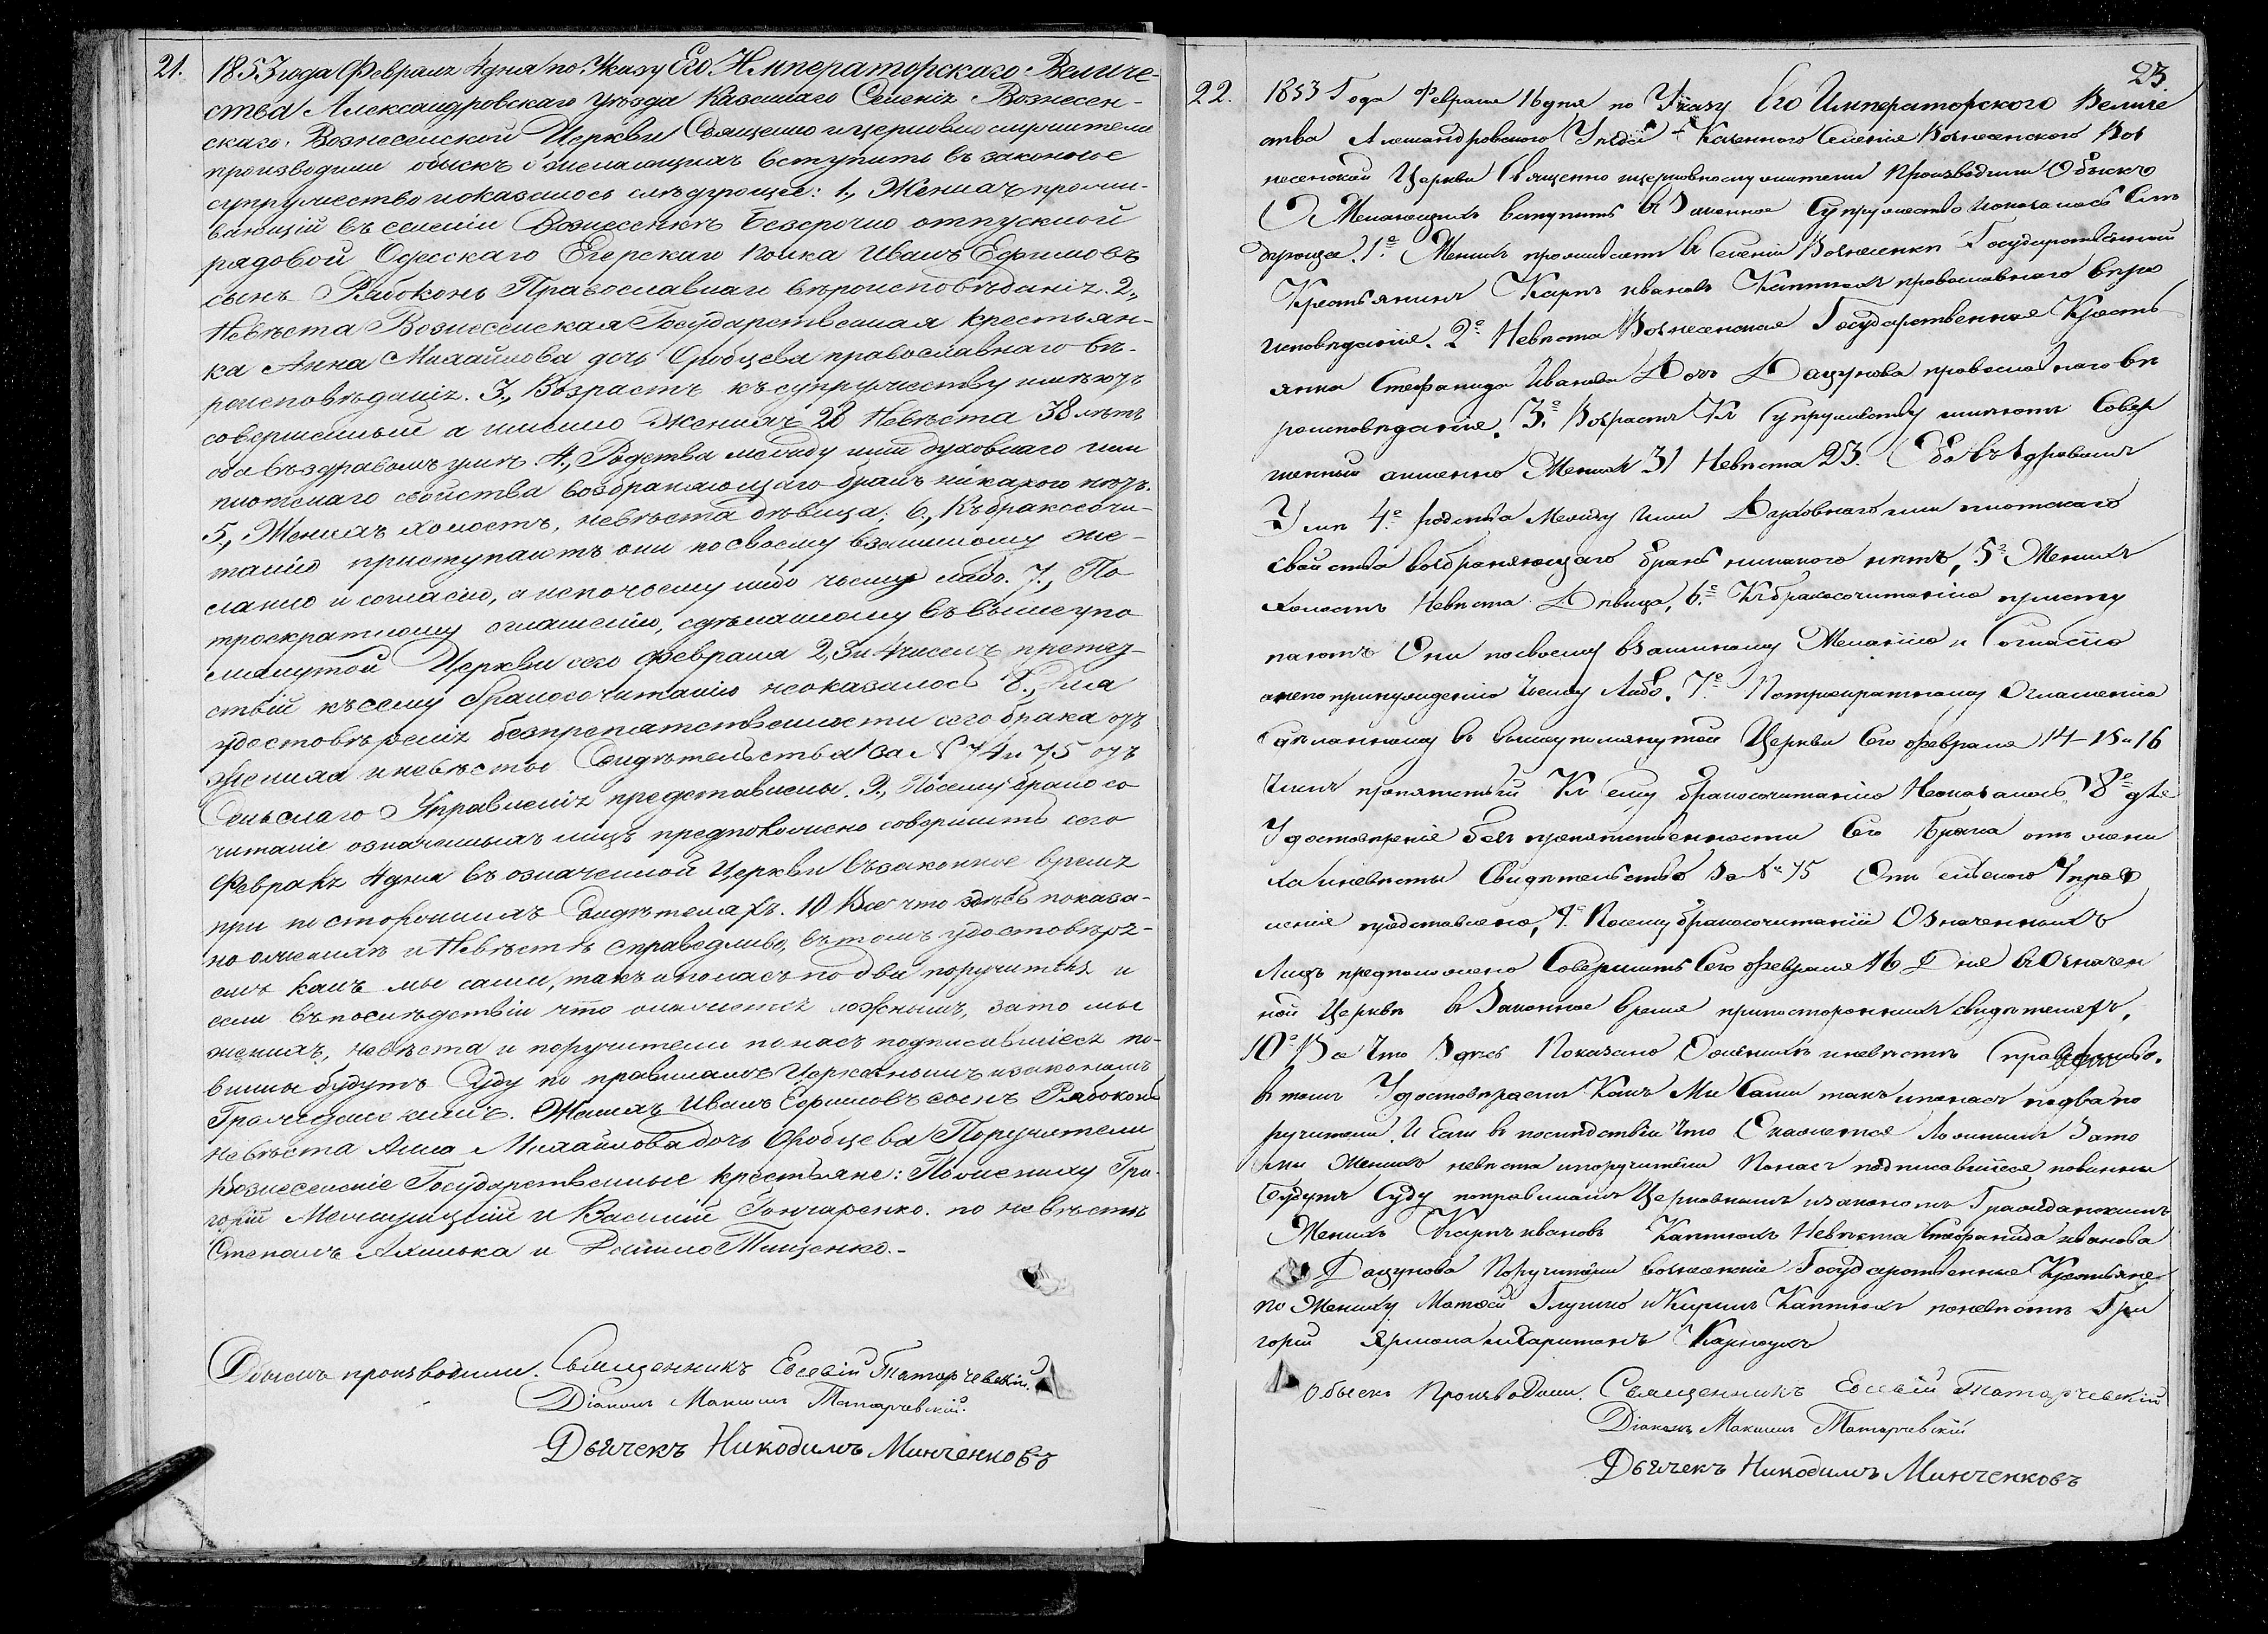 21.
1853 года Февраля 4 дня по Указу Его Императорскаго Величе-
ства Александровскаго уѣзда Казеннаго Селенія Вознесен-
скаго, Вознесенской Церкви Священно и церковно служители
производили обыскъ о желающихъ вступить въ законное
супружество и оказалось слѣдующее: 1., Женихъ прожи-
вающій въ селеніи Вознесенкѣ безсрочно отпускной
рядовой Одесскаго Егерскаго полка Иванъ Ефимовъ
сынъ Рябоконь Православнаго вѣроисповѣданія. 2.,
Невѣста Вознесенская Государственная крестьян-
ка Анна Михайлова дочь Оробцева православнаго вѣ-
роисповѣданія. 3., Возрастъ къ супружеству имѣютъ
совершенный а именно Женихъ 28 Невѣста 38 лѣтъ
оба въ здравомъ умѣ. 4., Родства между ими духовнаго или
плотскаго свойства возбраняющаго бракъ никакого нѣтъ.
5., Женихъ холостъ, невѣста дѣвица; 6., Къ бракосочи-
танію приступаютъ они по своему взаимному же-
ланію и согласію, а не по чьему либо. 7., По
троекратному оглашенію, сдѣланному въ вышеупо
мянутой Церкви сего февраля 2, 3 и 4 чиселъ препят-
ствій къ сему бракосочитанію не оказалось 8., Для
удостовѣренія безпрепятственности сего брака отъ
жениха и невѣсты Свидѣтельства за № 74 и 75 отъ
Сельскаго Управленія представлены. 9., Посему бракосо
читаніе означенныхъ лицъ предположено совершить сего
Февраля 4 дня въ означенной Церкви въ законное время
при постороннихъ Свидѣтеляхъ. 10 Все что здѣсь показа-
но о женихѣ и Невѣстѣ справедливо, въ томъ удостовѣря-
емъ какъ мы сами, такъ и по насъ по два поручителя и
если въ послѣдствіи что окажется ложнымъ, за то мы
женихъ, невѣста и поручители по насъ подписавшіеся по-
винны будутъ Суду по правиламъ Церковнымъ и законамъ
Гражданскимъ. Женихъ Иванъ Ефимовъ сынъ Рябоконь
невѣста Анна Михайлова дочь Оробцева Поручители
Вознесенскіе Государственные крестьяне: По жениху Гри-
горій и Василій Гончаренко. по невѣстѣ
Степанъ и Тищенко.-
Обыскъ производили. Священникъ Евсевій Татарчевскій.
Діаконъ Максимъ Татарчевскій.
Дьячекъ Никодимъ Минченковъ
23.
22.
1853 Года Февраля 16 дня по Указу Его Императорского Величе
ства Александровского Уѣзда Казенного Селенія Вознесенского Воз
несенской Церкви Священно и церковнослужители Производили Обыскъ
О Желающихъ вступить въ Законное Супружество и оказалось Слѣ
дующее. 1е Женихъ проживаетъ въ Селеніи Вознесенки Государственный
Крестьянинъ Карпъ ивановъ православнаго вѣро
исповѣданія. 2е Невѣста Вознесенская Государственная Кресть
янка Стефанида Иванова Дочь Дацунова православнаго вѣ
роисповѣданія. 3е Возрастъ Къ Супружеству имѣютъ Совер
шенный аименно Женихъ 31 Невѣста 23. Оба въ Здравомъ
Умѣ 4е родства Между Ими Духовнаго или плотскаго
Свойства возбраняющаго бракъ никакого нѣтъ, 5е Женихъ
холостъ Невѣста Дѣвица, 6е Къ бракосочитанію присту
паютъ Они посвоему взаимному Желанію и Согласію
анепопринужденію Чьему Либо. 7е Потроекратному Оглашенію
Сдѣланному въ вышеупомянутой Церкви Сего февраля 14-15 и 16
Чиселъ препятствій Къ сему бракосочитанію Неоказалось, 8е для
Удостовѣренія безъ препятственности Сего брака отъ жени
ха иневѣсты Свидѣтельство За № 75 Отъ Сельского Управ
ленія представлено, 9е Посему бракосочитаніи Означенныхъ
Лицъ предположено Совершить Сего февраля 16 Дня въ Означен
ной Церкви въ Законное время припостороннихъ свидѣтеляхъ,
10е Все Что Здѣсь Показано Оженихѣ иневѣстѣ Справедливо,
въ томъ Удостовѣряемъ Какъ Мы Сами такъ ипонасъ подва по
ручителя. И Если въ послѣдствіи Что Окажется Ложнымъ Зато
мы Женихъ невѣста ипоручители Понасъ подписавшіеся повинны
будутъ Суду поправиламъ Церковнымъ изаконамъ Гражданскимъ
Женихъ Карпъ ивановъ Невѣста Стефанида иванова
Дацунова Поручители вознесенскіе Государственные Крестьяне
по Жениху Матвей Глушко и поневѣстѣ Гри
горій Ярмола иХаритонъ
Обыскъ Производили. Священникъ Евсевій Татарчевскій
Діаконъ Максимъ Татарчевскій
Дьячекъ Никодимъ Минченковъ